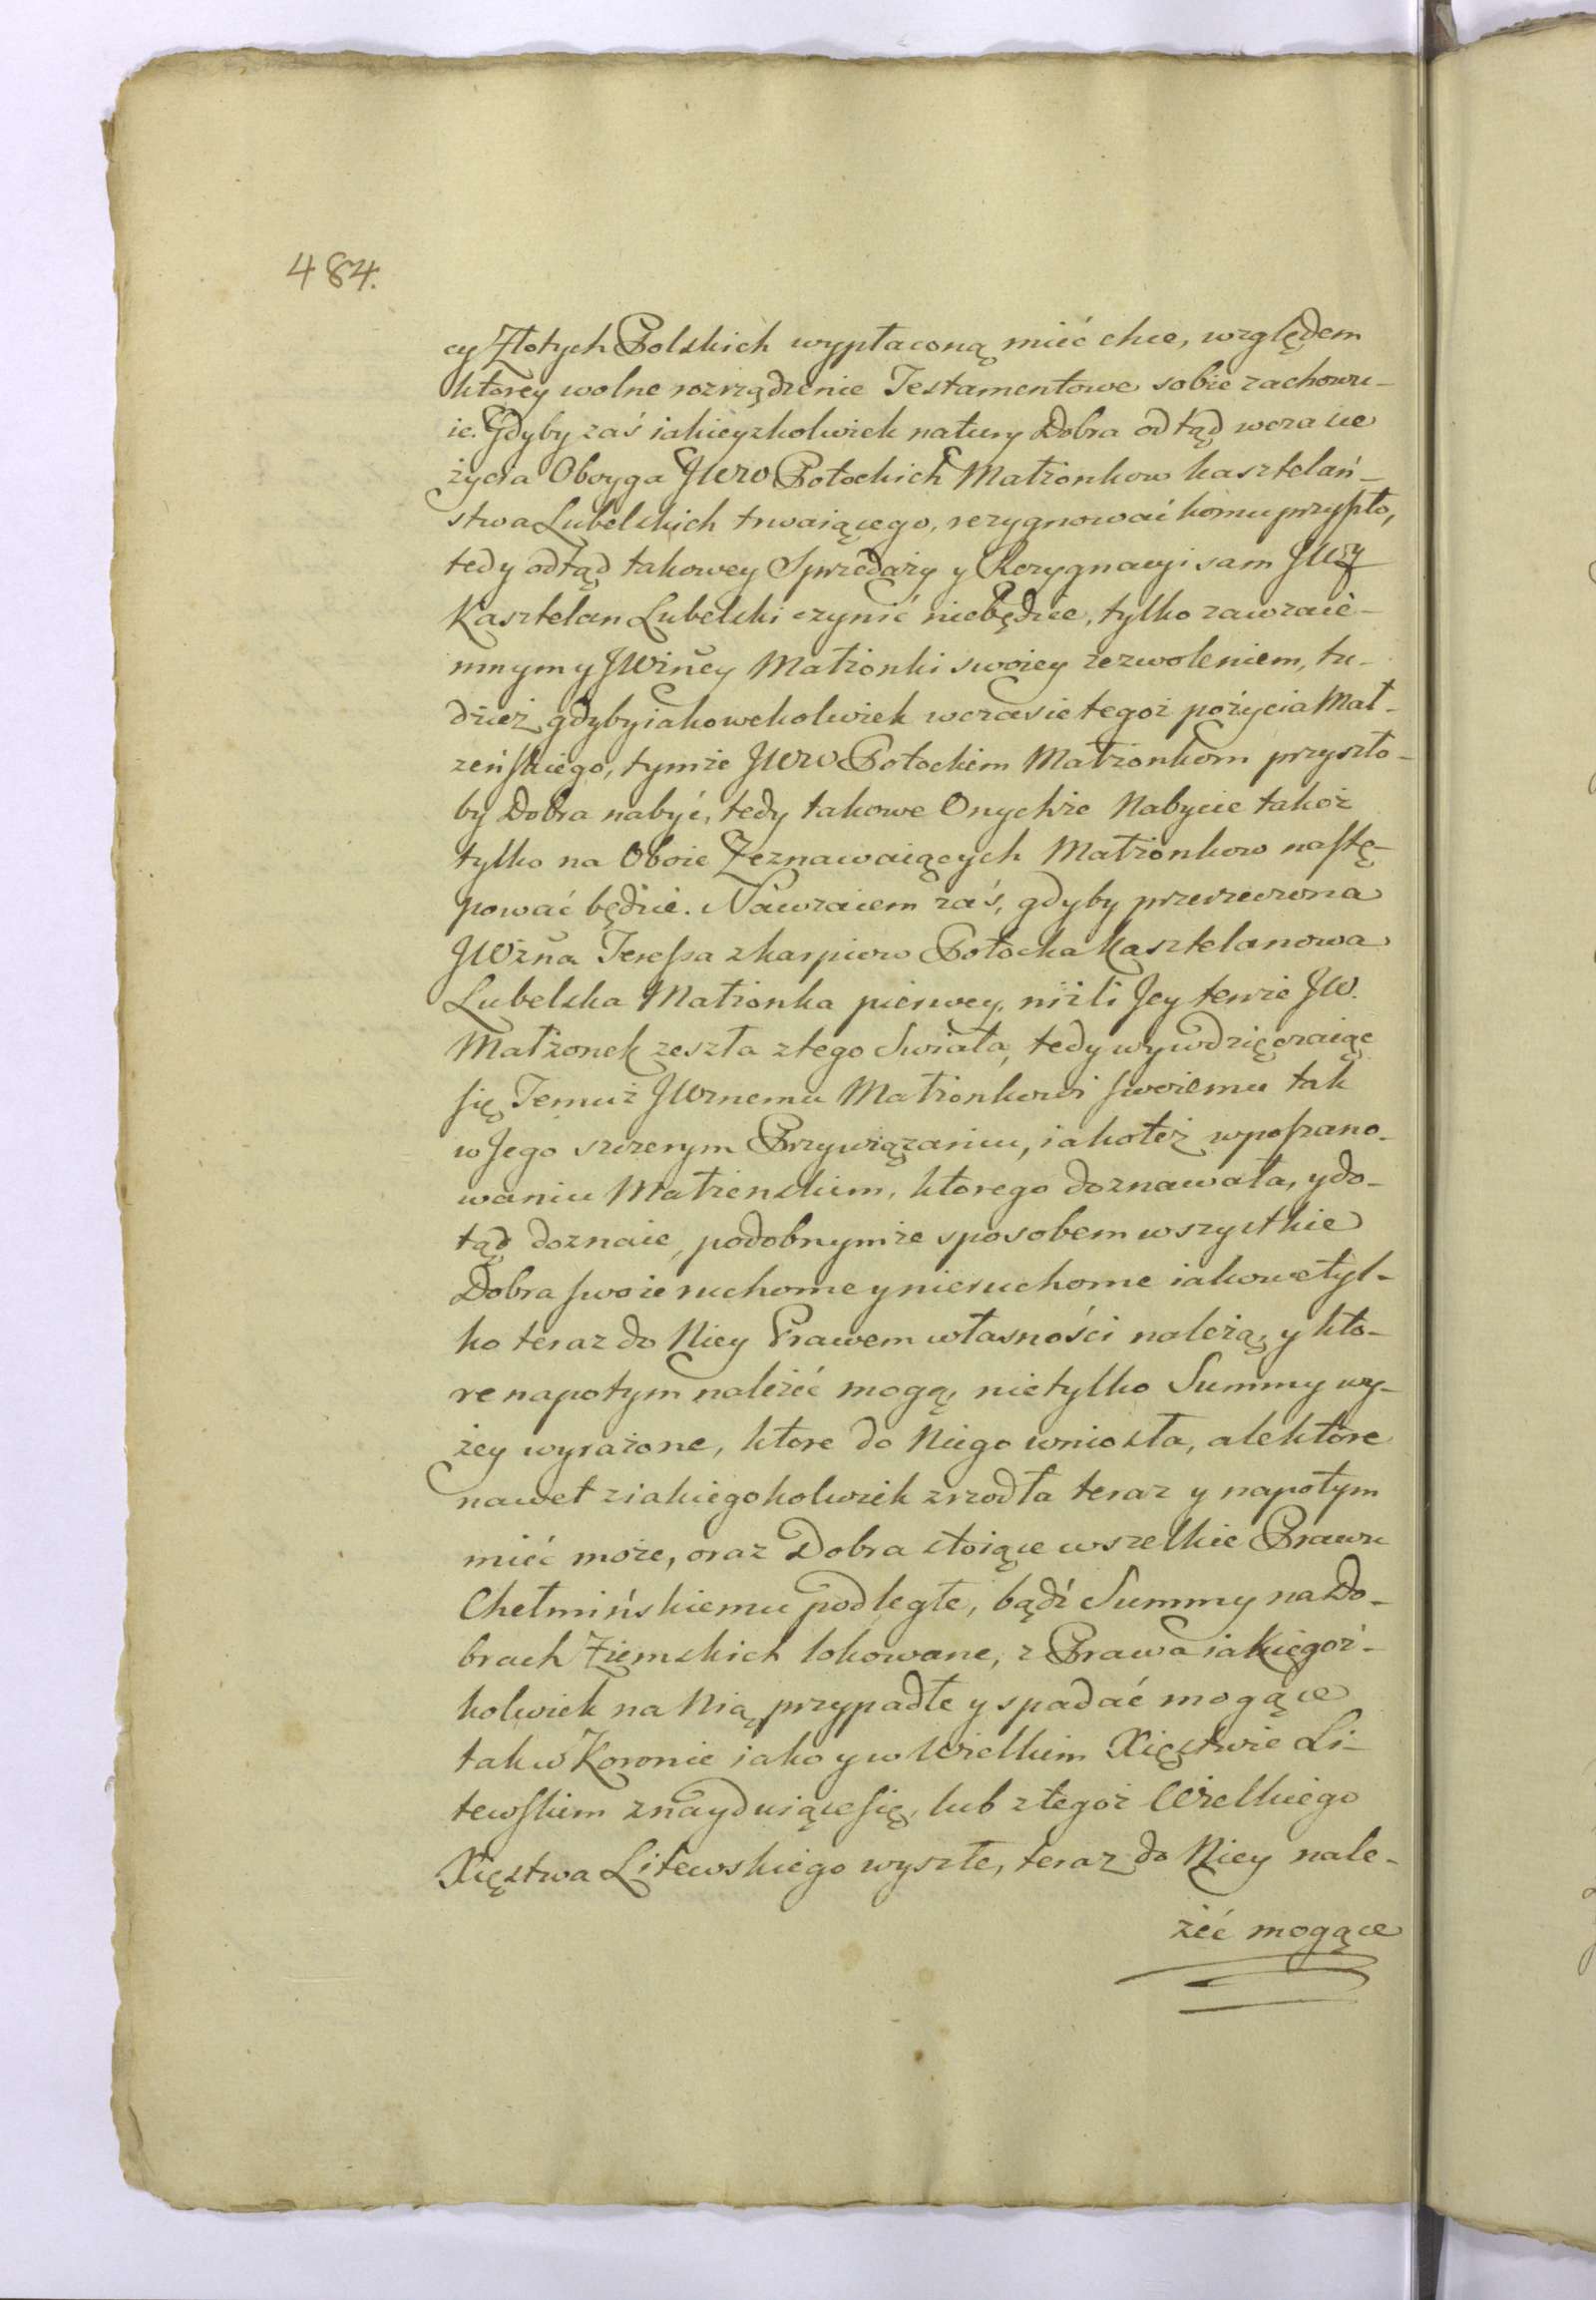 484.
cy Złotych Polskich wypłaconą mieć chce, względem
ktorey wolne rozrządzenie Testamentowe sobie zachowu-
ie. Gdyby zaś iakieyzkolwiek natury Dobra odtąd wczasie
życia Oboyga JWW Potockich Małżonkow kasztelań-
stwa Lubelskich trwaiącego, rezygnować komu przyszło,
tedy odtąd takowey Sprzedaży y Rezygnacyi sam JWzy
Kasztelan Lubelski czynić niebędzie, tylko zawzaie-
mnym y JWżney Małżonki swoiey zezwoleniem, tu-
dzież gdyby iakowekolwiek wczasie tegoż pożycia Mał-
żeńskiego, tymże JWW Potockim Małżonkom przyszło-
by Dobra nabyć, tedy takowe Onychże Nabycie takoż
tylko na Oboie Zeznawaiących Małżonkow nastę-
pować będzie. Nawzaiem zaś, gdyby przerzeczona
JWżna Teressa z karpiow Potocka Kasztelanowa
Lubelska Małżonka pierwey, niżli Jey tenże JW.
Małżonek zeszła ztego Swiata, tedy wywdzięczaiąc
się Temuż JWżnemu Małżonkowi swoiemu tak
w Jego szczerym Przywiązaniu, iakoteż wposzano-
waniu Małżenskim, ktorego doznawała, y do-
tąd doznaie, podobnymże sposobem wszystkie
Dobra swoie ruchome y nieruchome iakowe tyl-
ko teraz do Niey Prawem własności należą, y kto-
re napotym należeć mogą, nietylko Summy wy-
żey wyrażone, ktore do Niego wniosła, ale ktore
nawet ziakiegokolwiek zrzodła teraz y napotym
mieć może, oraz Dobra stoiące wszelkie Prawu
Chełmińskiemu podległe, bądź Summy na Do-
brach Ziemskich lokowane, z Prawa iakiegoż-
kolwiek na Nią przypadłe y spadać mogące
tak w Koronie iako y w Wielkim Xięstwie Li-
tewskim znayduiące się, lub ztegoż Wielkiego
Xięstwa Litewskiego wyszłe, teraz do Niey nale-
żeć mogące